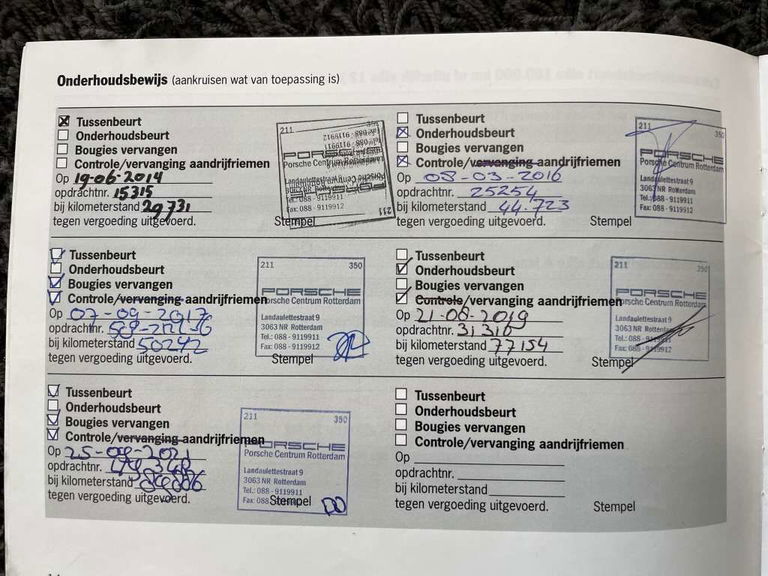 Onderhoudsbewijs (aankruisen wat van toepassing is)
Tussenbeurt
Onderhoudsbeurt
Bougies vervangen
Controle/vervanging aandrijfriemen
Op 19-06-2014
opdrachtnr. 15315
bij kilometerstand 29731
tegen vergoeding uitgevoerd.
Stempel
211 350
PORSCHE
Porsche Centrum Rotterdam
Landaulettestraat 9
Tel.: 088 - 9119911
Fax: 088 - 9119912
Tussenbeurt
Onderhoudsbeurt
Bougies vervangen
Controle/vervanging aandrijfriemen
Op 08-03-2016
opdrachtnr. 25254
bij kilometerstand 44.723
tegen vergoeding uitgevoerd.
Stempel
211 350
PORSCHE
Porsche Centrum Rotterdam
Landaulettestraat 9
3063 NR Rotterdam
Tel.: 088 - 9119911
Fax: 088 - 9119912
Tussenbeurt
Onderhoudsbeurt
Bougies vervangen
Controle/vervanging aandrijfriemen
Op 07-09-2017
opdrachtnr.
bij kilometerstand 50242
tegen vergoeding uitgevoerd.
Stempel
211 350
PORSCHE
Porsche Centrum Rotterdam
Landaulettestraat 9
3063 NR Rotterdam
Tel.: 088 - 9119911
Fax: 088 - 9119912
Tussenbeurt
Onderhoudsbeurt
Bougies vervangen
Controle/vervanging aandrijfriemen
Op 21-08-2019
opdrachtnr. 31316
bij kilometerstand 77154
tegen vergoeding uitgevoerd.
Stempel
211 350
PORSCHE
Porsche Centrum Rotterdam
Landaulettestraat 9
3063 NR Rotterdam
Tel.: 088 - 9119911
Fax: 088 - 9119912
Tussenbeurt
Onderhoudsbeurt
Bougies vervangen
Controle/vervanging aandrijfriemen
Op
opdrachtnr.
bij kilometerstand
tegen vergoeding uitgevoerd.
Stempel
211 350
PORSCHE
Porsche Centrum Rotterdam
Landaulettestraat 9
3063 NR Rotterdam
Tel.: 088 - 9119911
Fax: 088 - 9119912
Tussenbeurt
Onderhoudsbeurt
Bougies vervangen
Controle/vervanging aandrijfriemen
Op
opdrachtnr.
bij kilometerstand
tegen vergoeding uitgevoerd.
Stempel